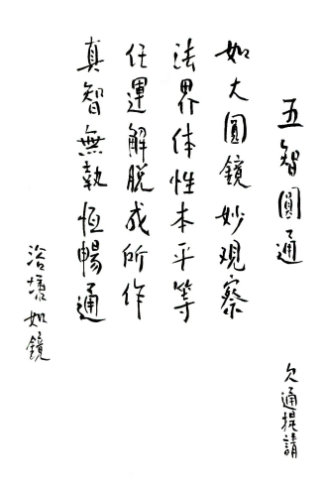 五智圓通
欠通提請
如大圓鏡妙观察
法界体性本平等
任運解脱成所作
真智無執恒暢通
洽壎如鏡